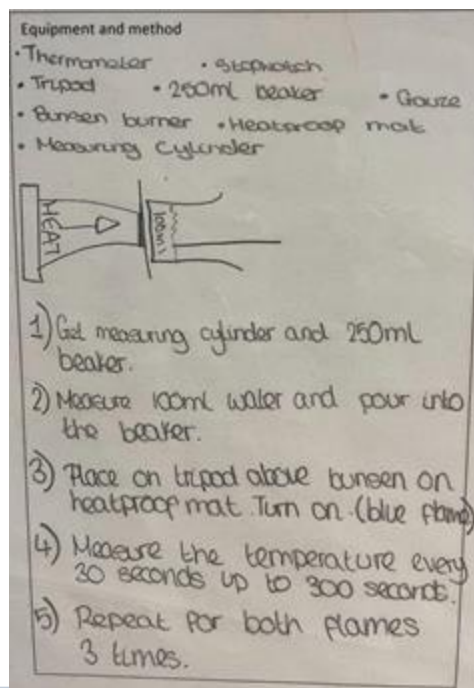 Equipment and method
• Thermometer • Stopwatch
• Tripod • 250ml beaker • Gauze
• Bunsen burner • Heatproof mat
• Measuring Cylinder
HEAT
100ml
1) Get measuring cylinder and 250ml
beaker.
2) Measure 100ml water and pour into
the beaker.
3) Place on tripod above bunsen on
heatproof mat. Turn on (blue flame)
4) Measure the temperature every
30 seconds up to 300 seconds.
5) Repeat for both flames
3 times.